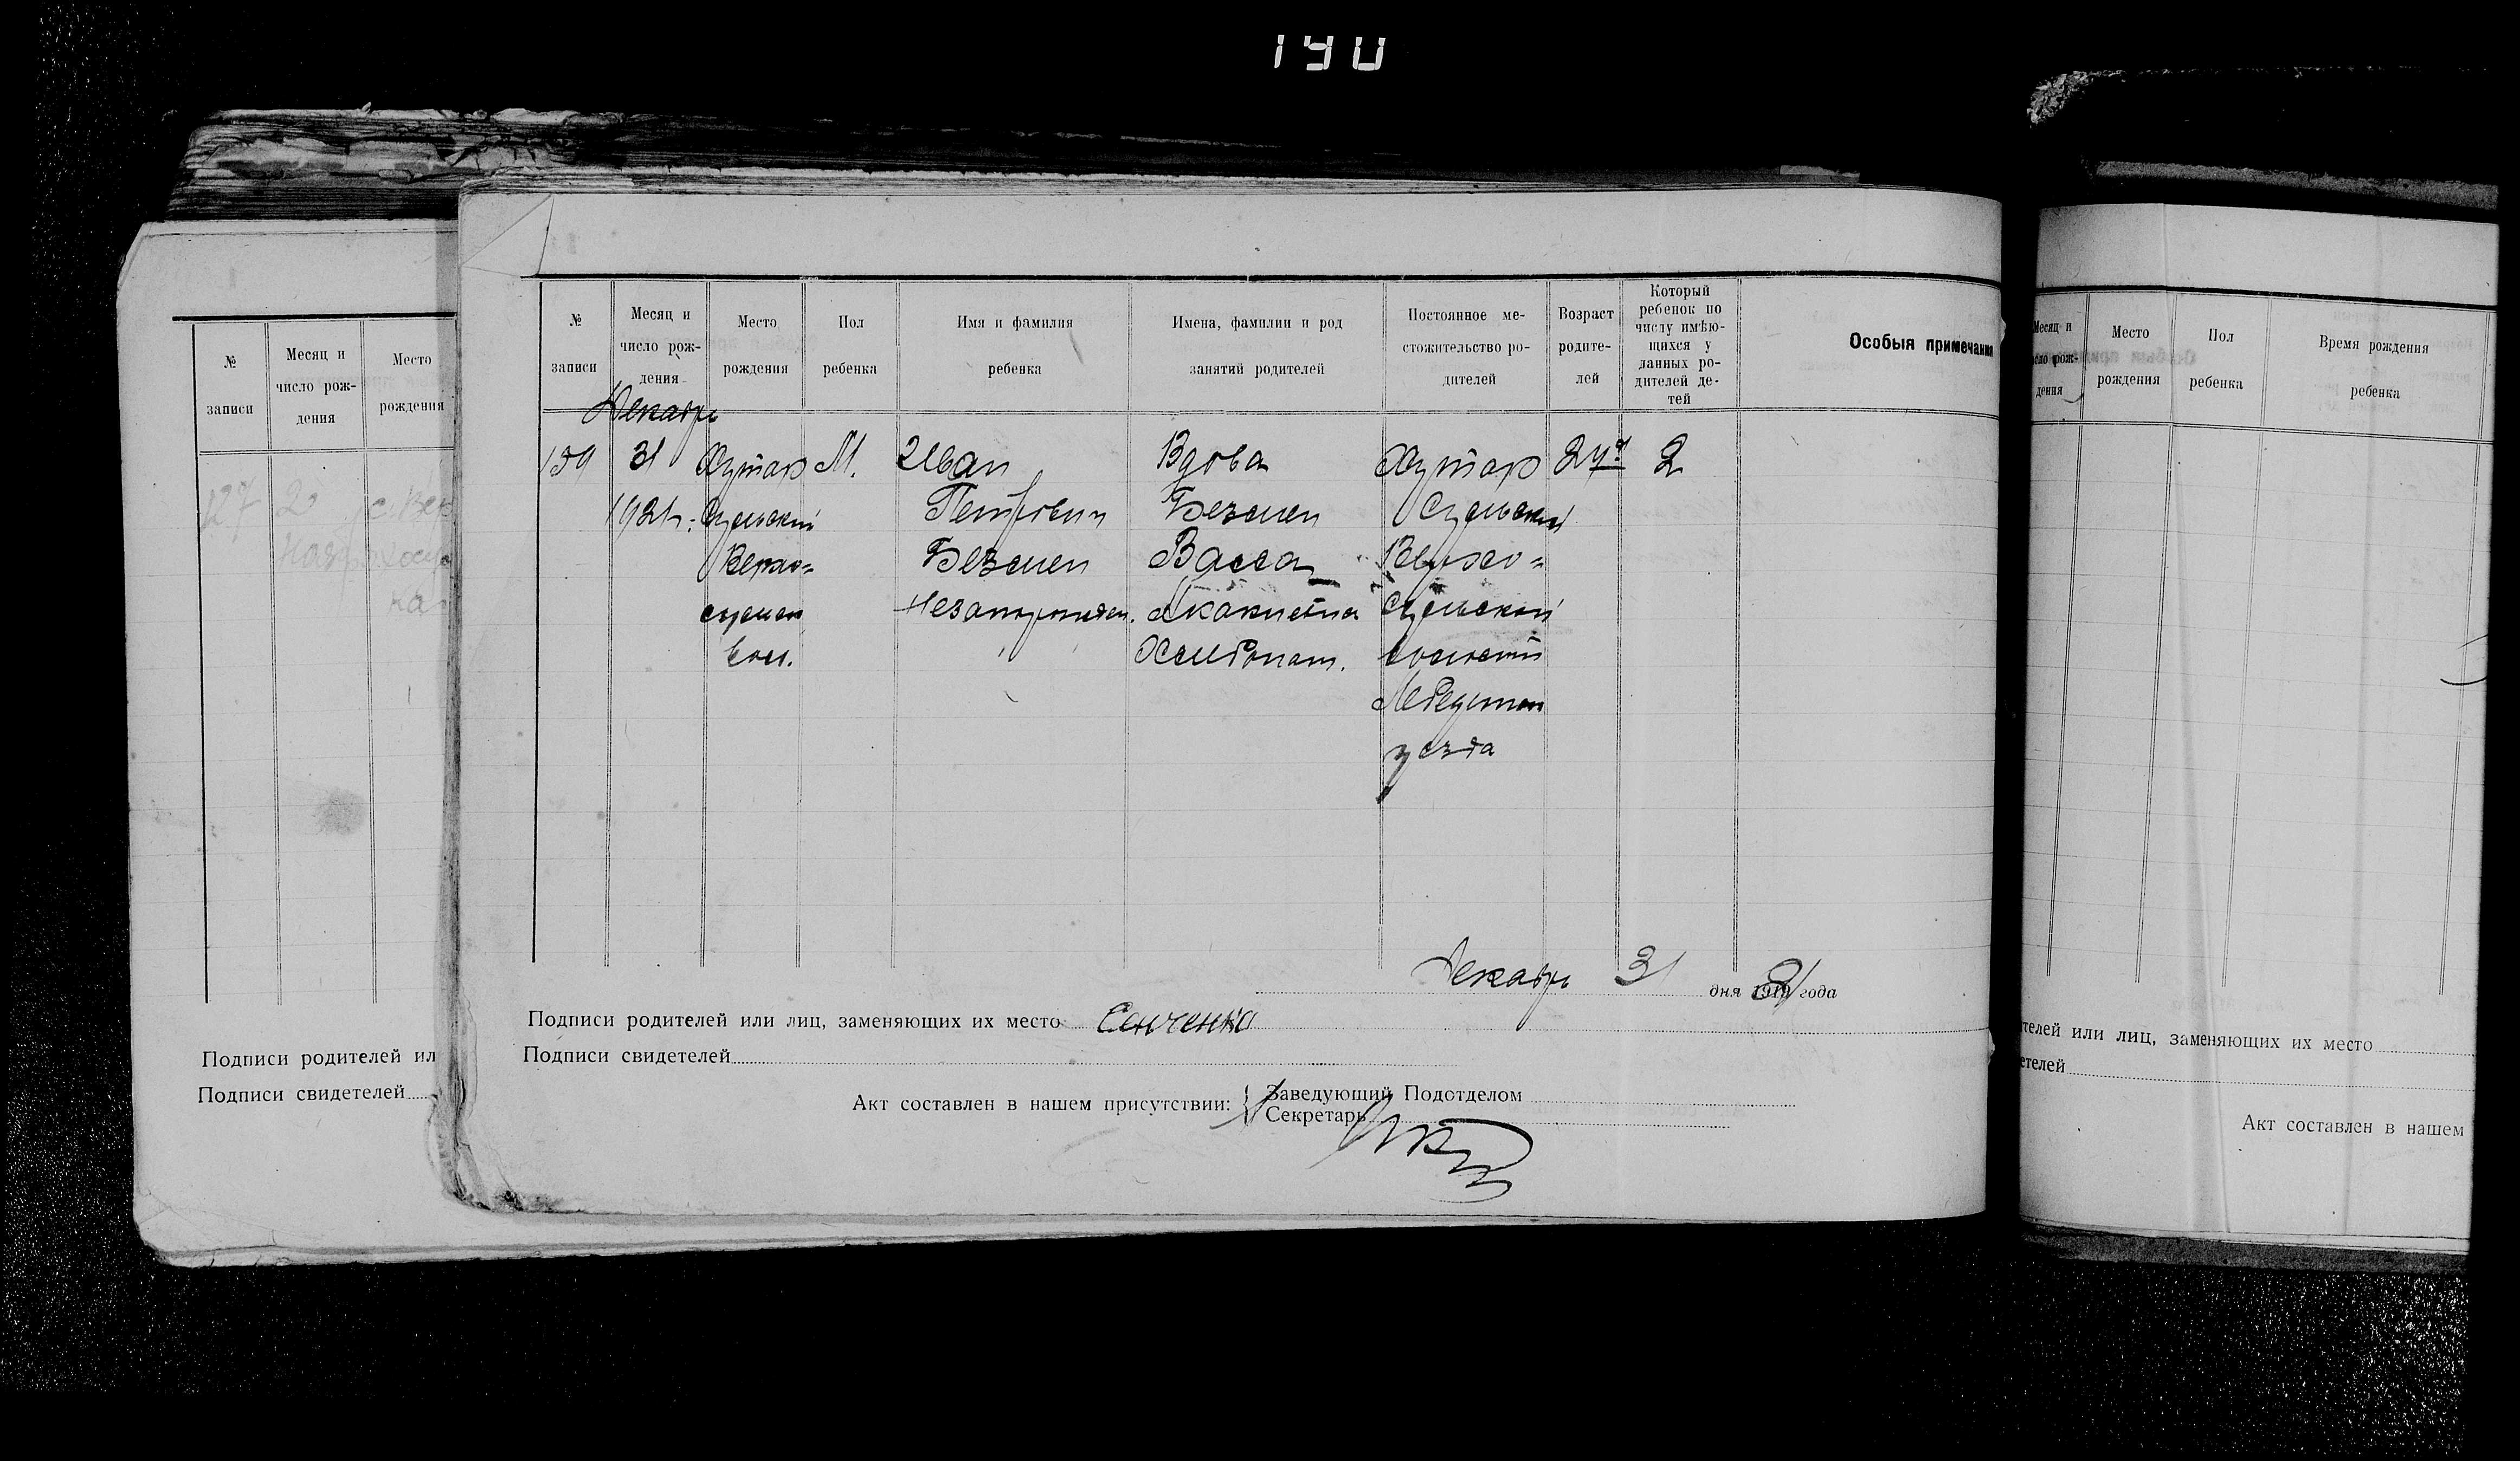 190
№
записи
Месяц и
число рож-
дения
Место
рождения
Подписи родителей ил
Подписи свидетелей
127 2
№
записи
Месяц и
число рож-
дения
Место
рождения
Пол
ребенка
Имя и фамилия
ребенка
Имена, фамилии и род
занятий родителей
Постоянное ме-
стожительство ро-
дителей
Возраст
родите-
лей
Который
ребенок по
числу имѣю-
щихся у
данных ро-
дителей де-
тей
Особыя примечания
Декабрь
159
31
1921 г.
Хутор
Сульский
Верхо=
сульск
вол.
М.
Иван
Петрович
Безмен
Вдова
Безмен
Васса
Акакиевна
Хутор
Сульский
Верхо=
сульской
волости
уезда
2
Декабрь 31 дня 1921 года
Подписи родителей или лиц, заменяющих их место Сенченко
Подписи свидетелей
Акт составлен в нашем присутствии:
Заведующий Подотделом
Секретарь
Месяц и
число рож-
дения
Место
рождения
Пол
ребенка
Время рождения
ребенка
телей или лиц, заменяющих их место
етелей
Акт составлен в нашем